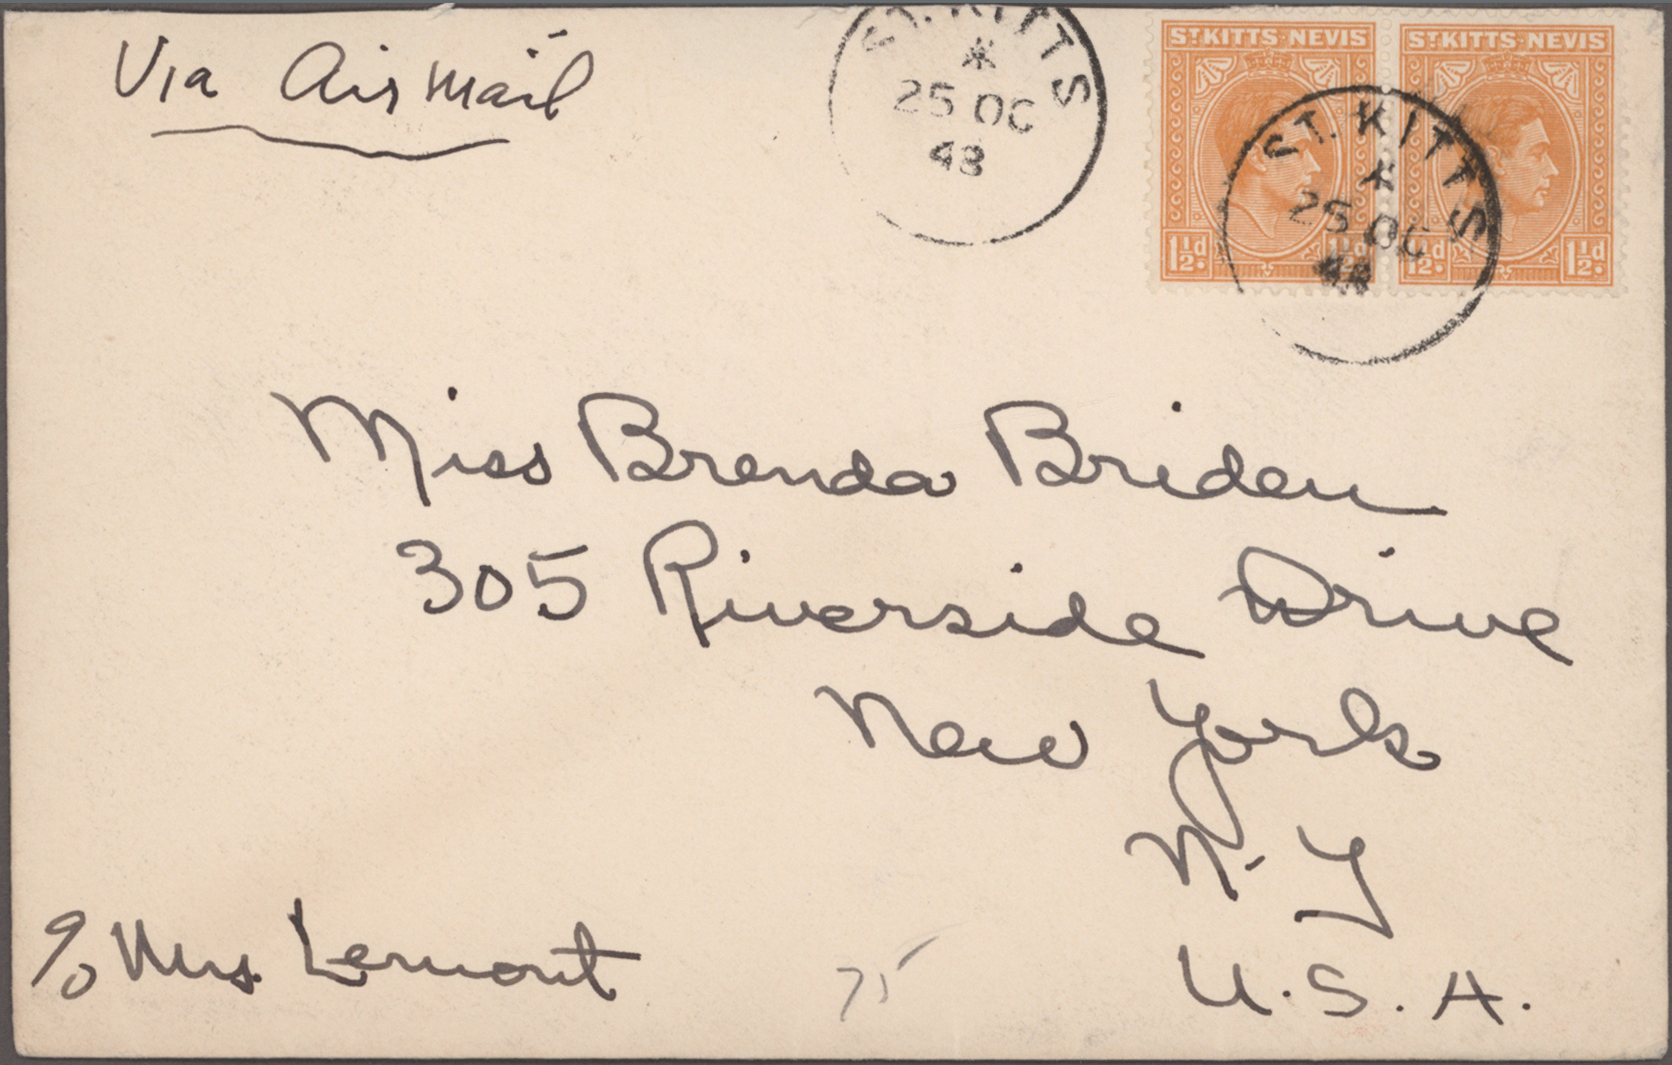 Via Air mail
ST. KITTS
25 OC
48
ST KITTS·NEVIS
1½d.
1½d.
ST KITTS·NEVIS
1½d.
1½d.
ST. KITTS
25 OC
48
Miss Brenda Briden
305 Riverside Drive
New York
N. Y
U. S. A.
c/o Mrs. Lemont
75